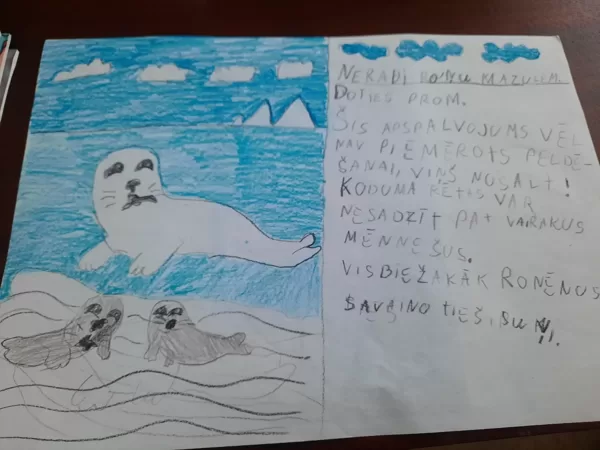 NERADI MAZULIM.
DOTIES PROM.
ŠIS APSPALVOJUMS VĒL
NAV PIEMĒROTS PELDĒ-
ŠANAI, VIŅŠ NOSALT!
KODUMA VAR
NESADZĪT PAT VARAKUS
MĒNNEŠUS.
VISBIEŽAKĀK RONĒNUS
SAVAINO TIEŠI SUŅI.